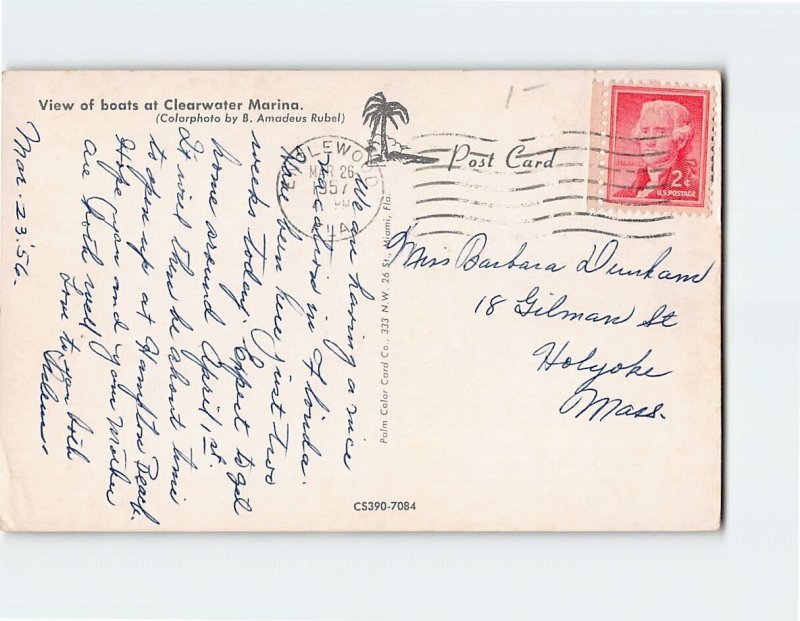 View of boats at Clearwater Marina.
(Colorphoto by B. Amadeus Rubel)
Mar. 23 '56.
We are having a nice
vacation in Florida.
Have been here just two
weeks today. Expect to get
home around April 1, st.
It will then be about time
to open up at Hampton Beach.
Hope you and your Mother
are both well.
Love to you both
Helen.
ENGLEWOOD
MAR 26
1957
PM
FLA.
Palm Color Card Co., 333 N.W. 26 St., Miami, Fla.
Post Card
2¢
U.S. POSTAGE
Miss Barbara Dunham
18 Gilman St
Holyoke
Mass.
CS390-7084